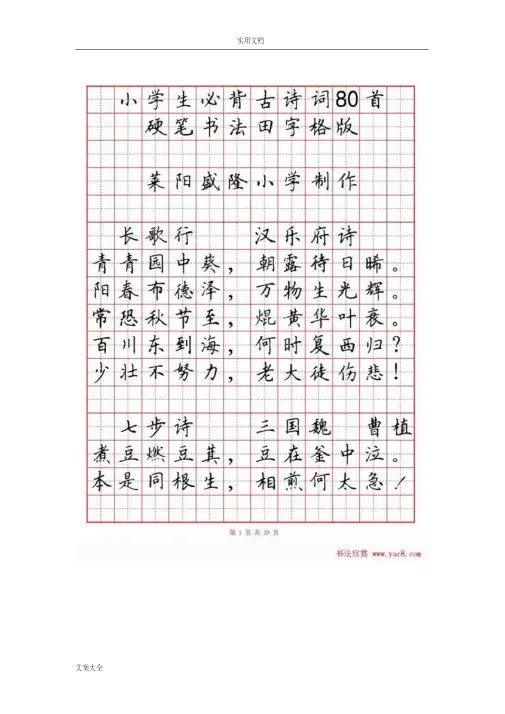 实用文档
小学生必背古诗词80首
硬笔书法田字格版
莱阳盛隆小学制作
长歌行 汉乐府诗
青青园中葵，朝露待日晞。
阳春布德泽，万物生光辉。
常恐秋节至，焜黄华叶衰。
百川东到海，何时复西归？
少壮不努力，老大徒伤悲！
七步诗 三国魏 曹植
煮豆燃豆萁，豆在釜中泣。
本是同根生，相煎何太急！
第 1 页 共 20 页
书法欣赏 www.yac8.com
文案大全